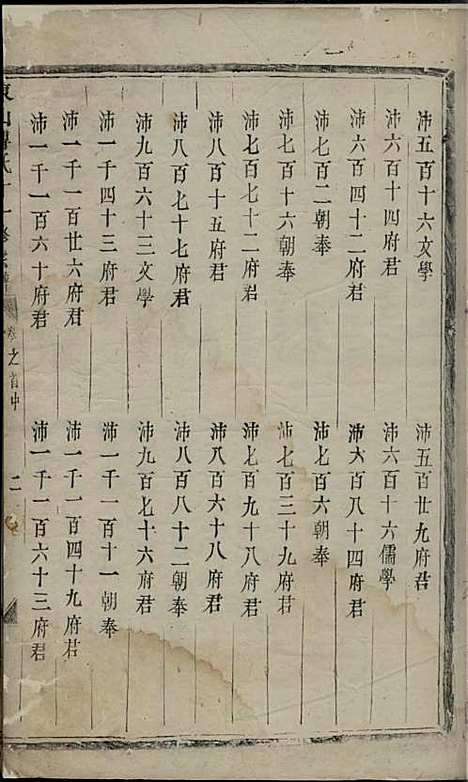 沛五百十六文學
沛五百廿九府君
沛六百十四府君
沛六百十六儒學
沛六百四十二府君
沛六百八十四府君
沛七百二朝奉
沛七百六朝奉
沛七百十六朝奉
沛七百三十九府君
沛七百七十二府君
沛七百九十八府君
沛八百十五府君
沛八百六十八府君
沛八百七十七府君
沛八百八十二朝奉
沛九百六十三文學
沛九百七十六府君
沛一千四十三府君
沛一千一百十一朝奉
沛一千一百廿六府君
沛一千一百四十九府君
沛一千一百六十府君
沛一千一百六十三府君
卷之首中 二